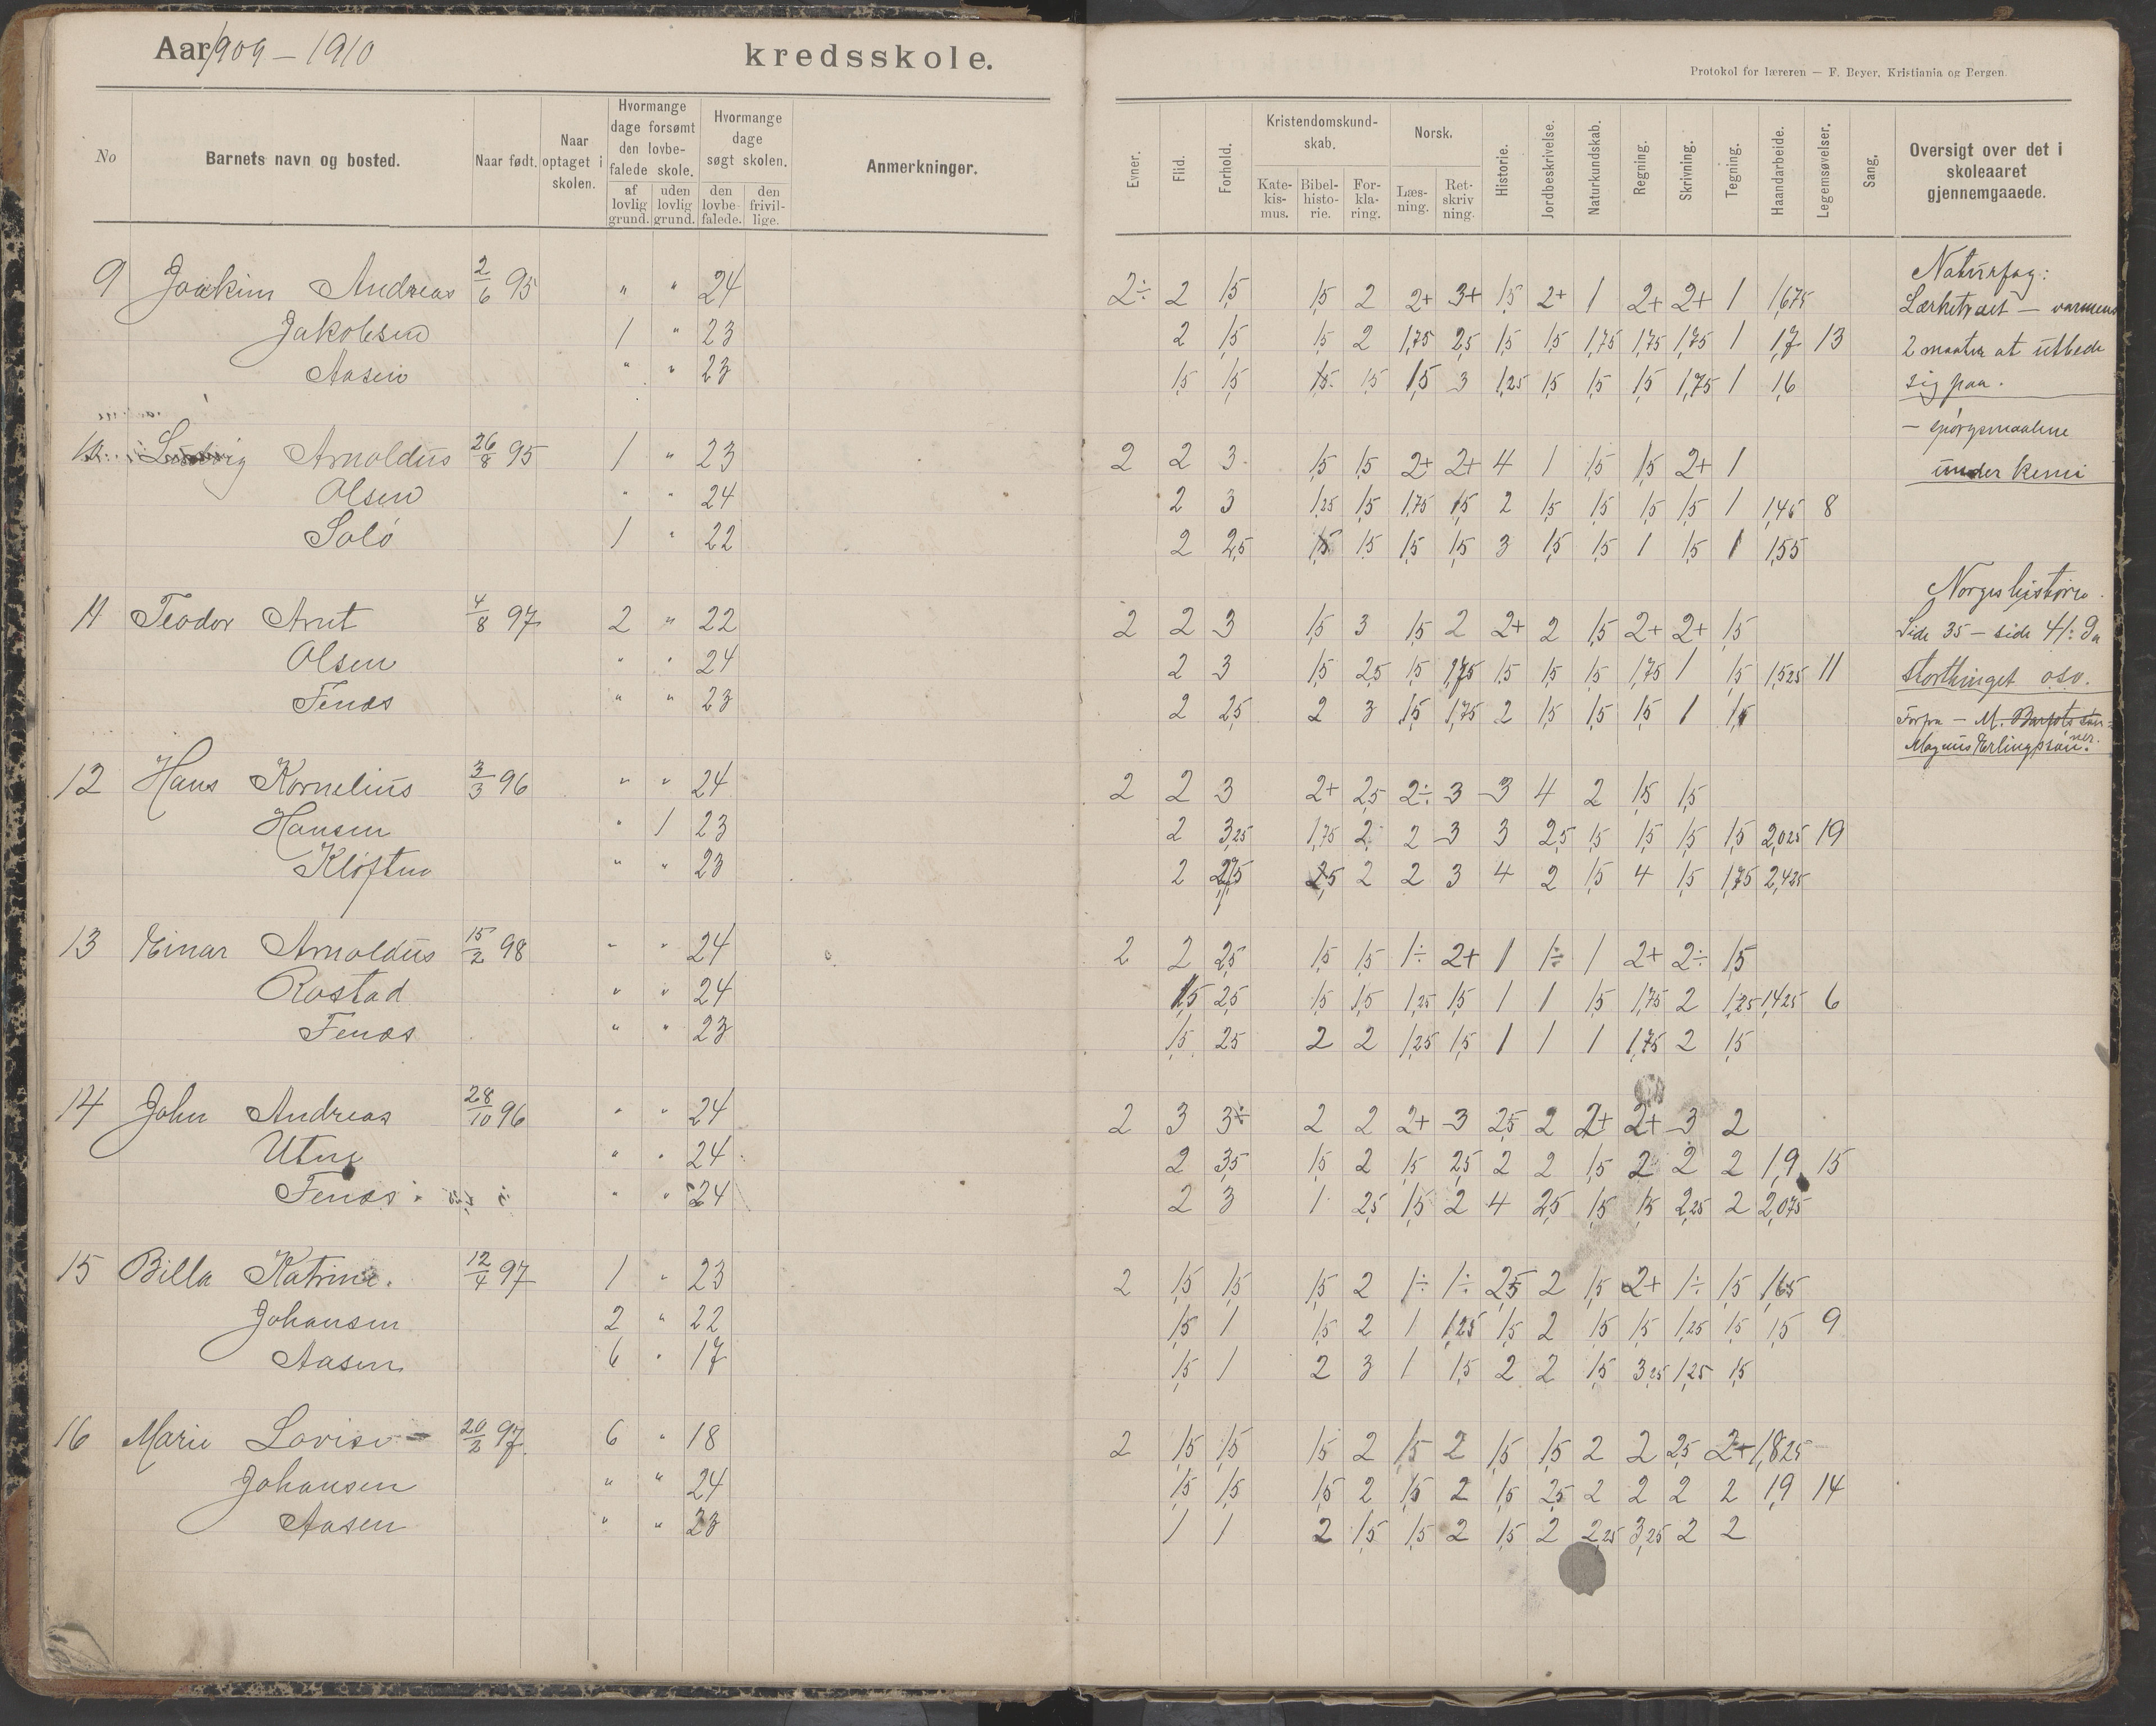 Aar 1909 – 1910 kredsskole.
Protokol for læreren — F. Beyer, Kristiania og Bergen.
No
Barnets navn og bosted.
Naar født.
Naar optaget i skolen.
Hvormange dage forsømt den lovbefalede skole.
af lovlig grund.
uden lovlig grund.
Hvormange dage søgt skolen.
den lovbefalede.
den frivillige.
Anmerkninger.
Evner.
Flid.
Forhold.
Kristendomskundskab.
Katekismus.
Bibelhistorie.
Forklaring.
Norsk.
Læsning.
Retskrivning.
Historie.
Jordbeskrivelse.
Naturkundskab.
Regning.
Skrivning.
Tegning.
Haandarbeide.
Legemsøvelser.
Sang.
Oversigt over det i skoleaaret gjennemgaaede.
9 Joakim Andreas 2/6 95 " " 24 2÷ 2 1,5 1,5 2 2+ 3+ 1,5 2+ 1 2+ 2+ 1 1,675
Jakobsen 1 " 23 2 1,5 1,5 2 1,75 2,5 1,5 1,5 1,75 1,75 1,75 1 1,7 13
Aasen " " 23 1,5 1,5 1,5 1,5 1,5 3 1,25 1,5 1,5 1,5 1,75 1 1,6
10 Ludvig Arnoldus 26/8 95 1 " 23 2 2 3 1,5 1,5 2+ 2+ 4 1 1,5 1,5 2+ 1
Olsen " " 24 2 3 1,25 1,5 1,75 1,5 2 1,5 1,5 1,5 1,5 1 1,45 8
Solø 1 " 22 2 2,5 1,5 1,5 1,5 1,5 3 1,5 1,5 1 1,5 1 1,55
11 Teodor Arnt 4/8 97 2 " 22 2 2 3 1,5 3 1,5 2 2+ 2 1,5 2+ 2+ 1,5
Olsen " " 24 2 3 1,5 2,5 1,5 1,75 1,5 1,5 1,5 1,75 1 1,5 1,525 11
Fenes " " 23 2 2,5 2 3 1,5 1,75 2 1,5 1,5 1,5 1 1,5
12 Hans Kornelius 3/3 96 " " 24 2 2 3 2+ 2,5 2÷ 3 3 4 2 1,5 1,5
Hansen " 1 23 2 3,25 1,75 2 2 3 3 2,5 1,5 1,5 1,5 1,5 2,025 19
Kløften " " 23 2 2,75 2,5 2 2 3 4 2 1,5 4 1,5 1,75 2,425
13 Einar Arnoldus 15/2 98 " " 24 2 2 2,5 1,5 1,5 1÷ 2+ 1 1÷ 1 2+ 2÷ 1,5
Rostad " " 24 1,5 2,5 1,5 1,5 1,25 1,5 1 1 1,5 1,75 2 1,25 1,425 6
Fenes " " 23 1,5 2,5 2 2 1,25 1,5 1 1 1 1,75 2 1,5
14 John Andreas 28/10 96 " " 24 2 3 3÷ 2 2 2+ 3 2,5 2 2+ 2+ 3 2
Utne " " 24 2 3,5 1,5 2 1,5 2,5 2 2 1,5 2 2 2 1,9 15
Fenes " " 24 2 3 1 2,5 1,5 2 4 2,5 1,5 1,5 2,25 2 2,075
15 Billa Katrine. 12/4 97 1 " 23 2 1,5 1,5 1,5 2 1÷ 1÷ 2,5 2 1,5 2+ 1÷ 1,5 1,65
Johansen 2 " 22 1,5 1 1,5 2 1 1,25 1,5 2 1,5 1,5 1,25 1,5 1,5 9
Aasen 6 " 17 1,5 1 2 3 1 1,5 2 2 1,5 3,25 1,25 1,5
16 Marie Lovise 20/2 97 6 " 18 2 1,5 1,5 1,5 2 1,5 2 1,5 1,5 2 2 2,5 2+ 1,825
Johansen " " 24 1,5 1,5 1,5 2 1,5 2 1,5 2,5 2 2 2 2 1,9 14
Aasen " " 23 1 1 2 1,5 1,5 2 1,5 2 2,25 3,25 2 2
Naturfag:
Lærketræet – varmens
2 maater at utbede
sig paa.
– spørgsmaalene
under kemi
Norgeshistorie.
Side 35 – side 41:
storthinget o.s.v.
– M.
Magnus Erlingssøn.